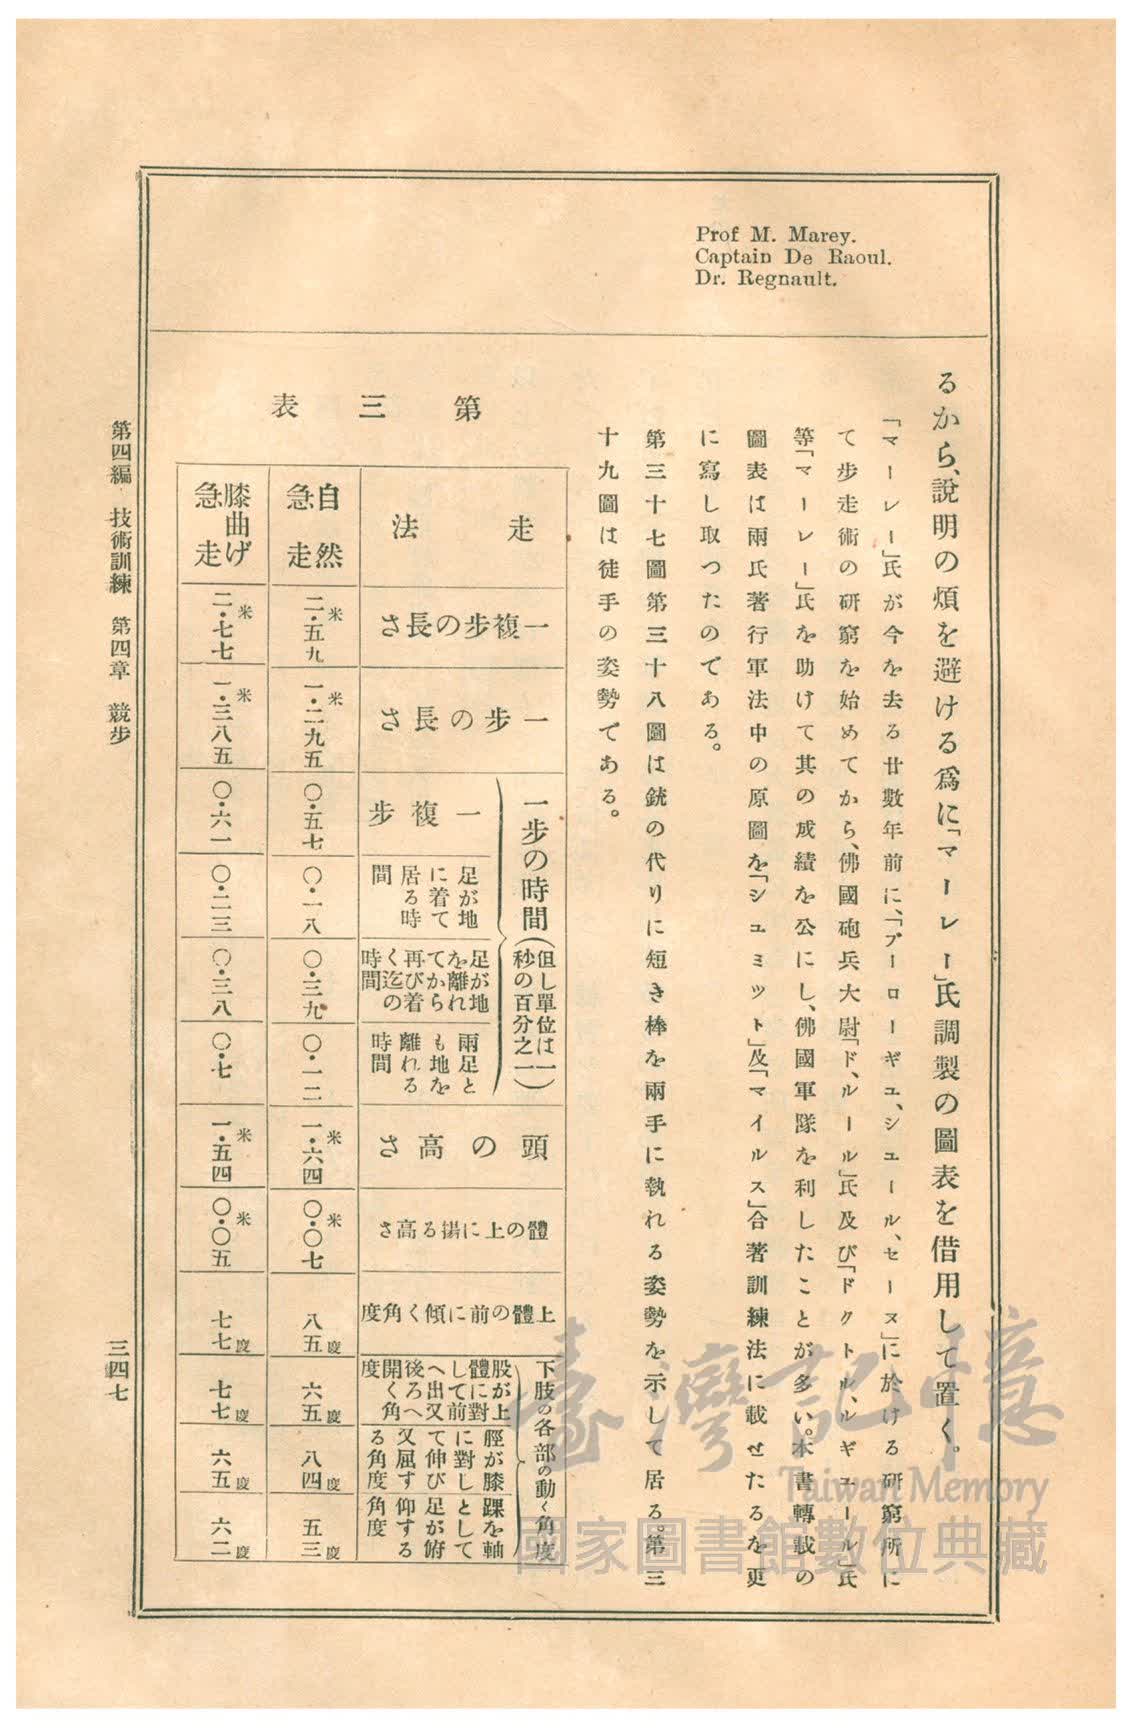 Prof M. Marey.
Captain De Raoul.
Dr. Regnault.
るから、說明の煩を避ける爲に「マーレー」氏調製の圖表を借用して置く。
「マーレー」氏が今を去る廿數年前に、「ブーローギュ、シュール、セーヌ」に於ける研窮所に
て步走術の研窮を始めてから、佛國砲兵大尉「ド、ルール」氏及び「ドクトル、ルギュール」氏
等「マーレー」氏を助けて其の成績を公にし、佛國軍隊を利したことが多い。本書轉載の
圖表は兩氏著行軍法中の原圖を「シュミット」及「マイルス」合著訓練法に載せたるを更
に寫し取つたのである。
第三十七圖第三十八圖は銃の代りに短き棒を兩手に執れる姿勢を示して居る。第三
十九圖は徒手の姿勢である。
第三表
走法
一複步の長さ
一步の長さ
一步の時間(但し單位は一秒の百分之一)
一複步
足が地に着て居る時間
足が地を離れてから再び着く迄の時間
兩足とも地を離れる時間
頭の高さ
體の上に揚る高さ
上體の前に傾く角度
下肢の各部の動く角度
股が上體に對して前へ出又後ろへ開く角度
脛が膝に對して伸び又屈する角度
踝を軸として足が俯仰する角度
自然急走
二・五九米
一・二九五米
〇・五七
〇・一八
〇・三九
〇・一二
一・六四米
〇・〇七米
八五度
六五度
八四度
五三度
膝曲げ急走
二・七七米
一・三八五米
〇・六一
〇・二三
〇・三八
〇・七
一・五四米
〇・〇五米
七七度
七七度
六五度
六二度
第四編 技術訓練 第四章 競步
三四七
臺灣記憶
Taiwan Memory
國家圖書館數位典藏